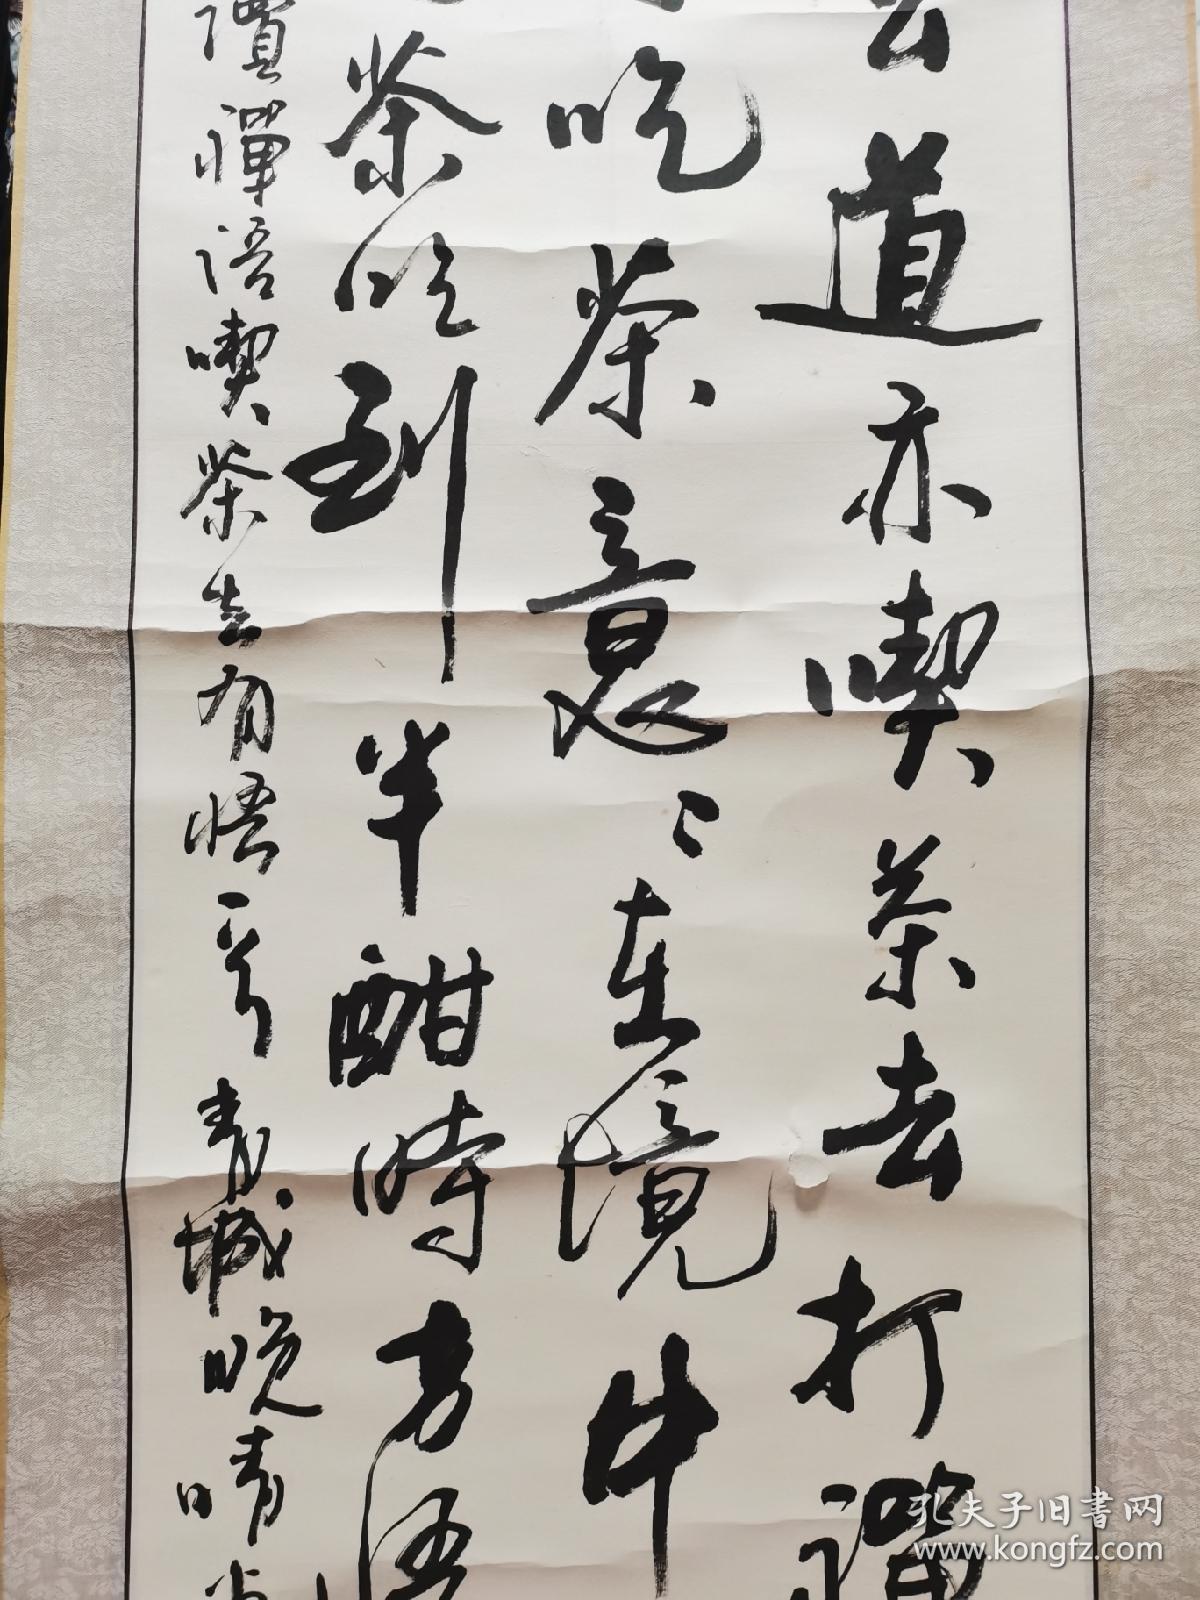 去道亦喫茶去打禪
吃茶意〻在境中
茶吃到半酣時方悟
讀禪語喫茶去有悟一哥青城晚晴
孔夫子旧書网
www.kongfz.com